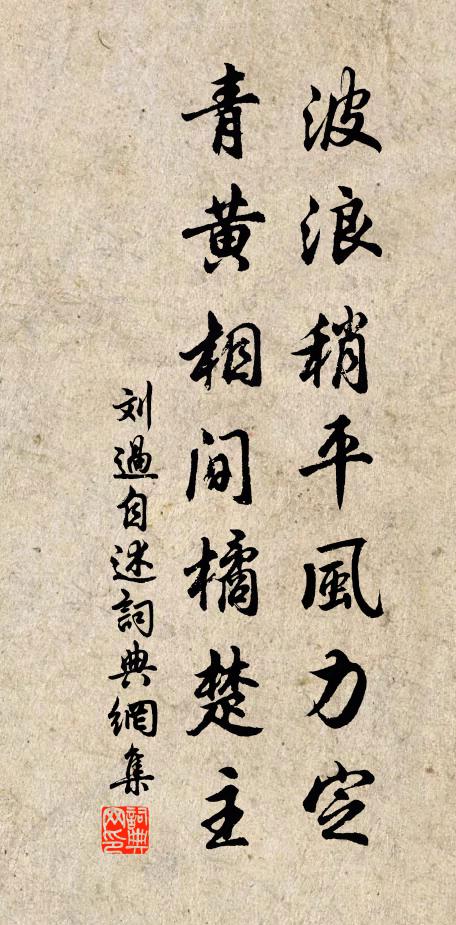 波浪稍平風力定
青黄相間橘楚主
刘過自述詞典網集
詞典網印